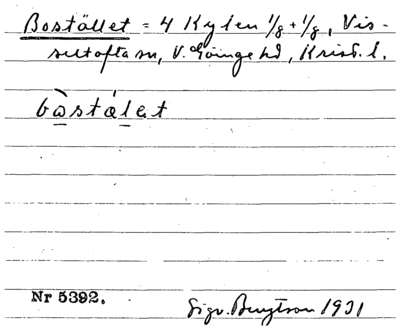 Bostället = 4 Kylen 1/8 + 1/8, Vis-
seltofta sn, V. Göinge hd, Krist. l.
bòstálet
Nr 5392.
Sigv. Bengtson 1931